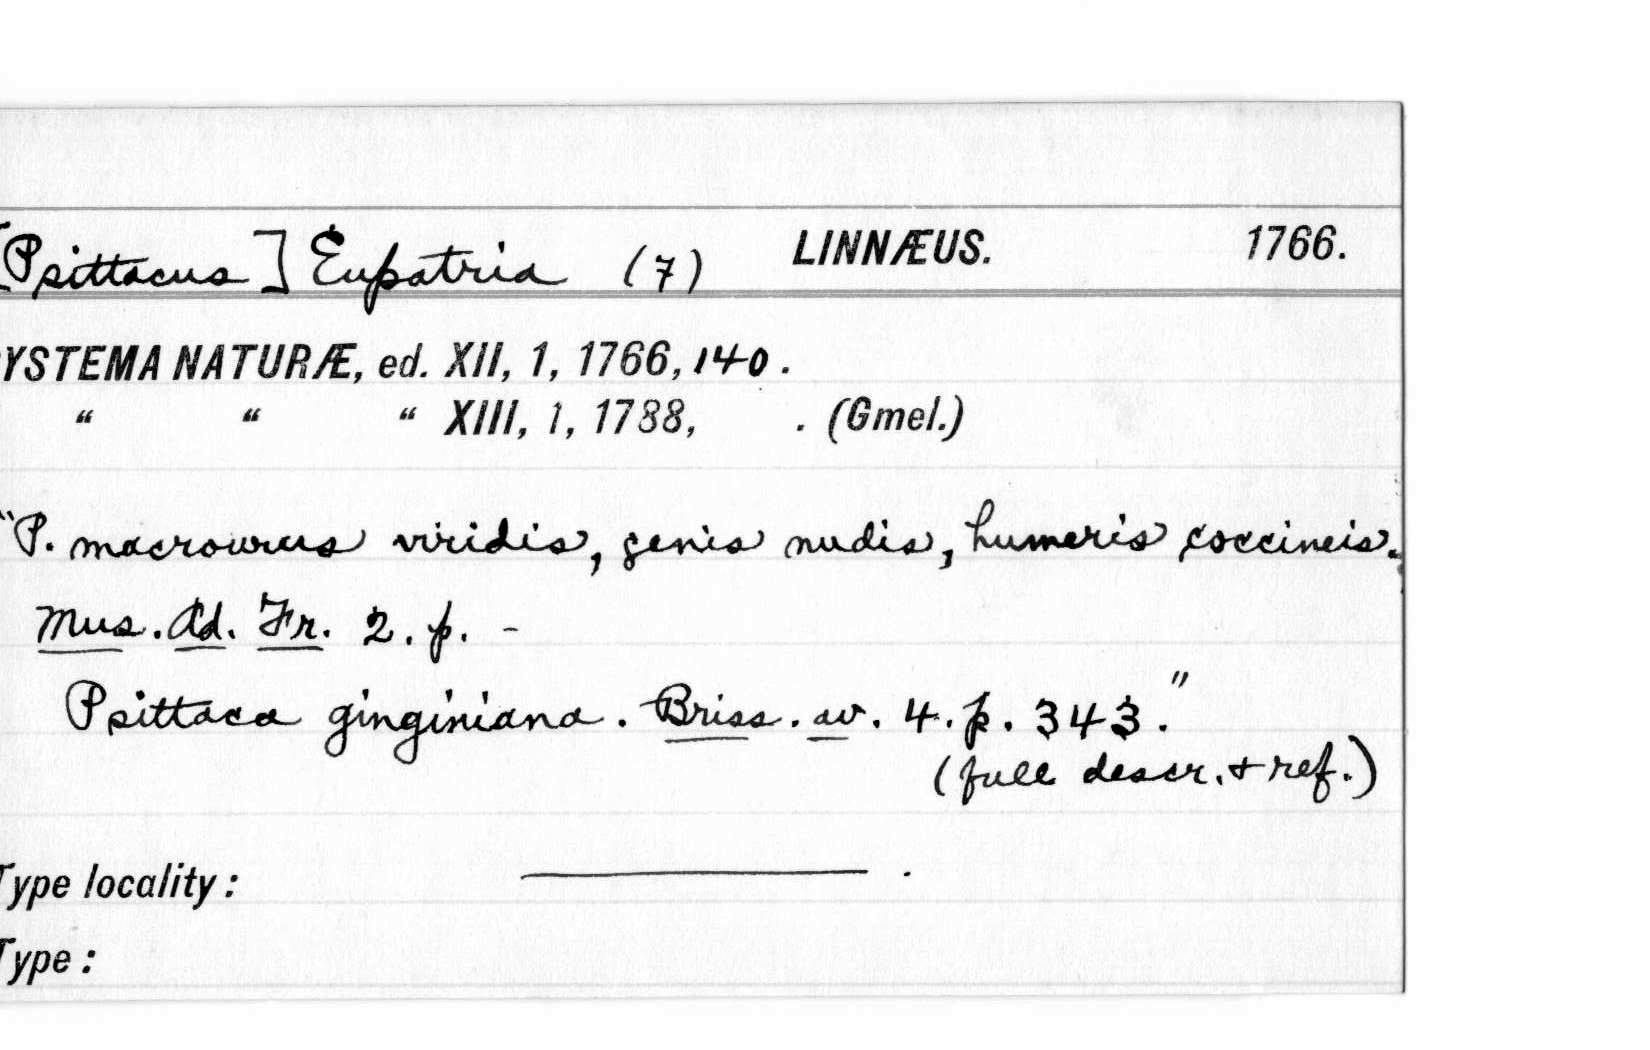 [Psittacus] Eupatria (7) LINNÆUS. 1766.
YSTEMA NATURÆ, ed. XII, 1, 1766, 140.
" " " XIII, 1, 1788, . (Gmel.)
"P. macrourus viridis, genis nudis, humeris coccineis.
Mus. Ad. Fr. 2. p. -
Psittaca ginginiana. Briss. av. 4. p. 343."
(full descr. & ref.)
Type locality: ———.
Type: